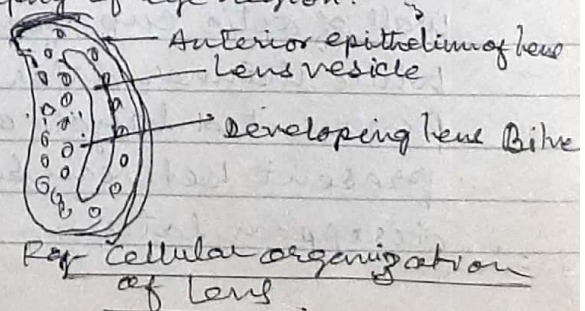 of eye region.
Anterior epithelium of lens
Lens vesicle
Developing lens
Fig- Cellular organization
of lens.